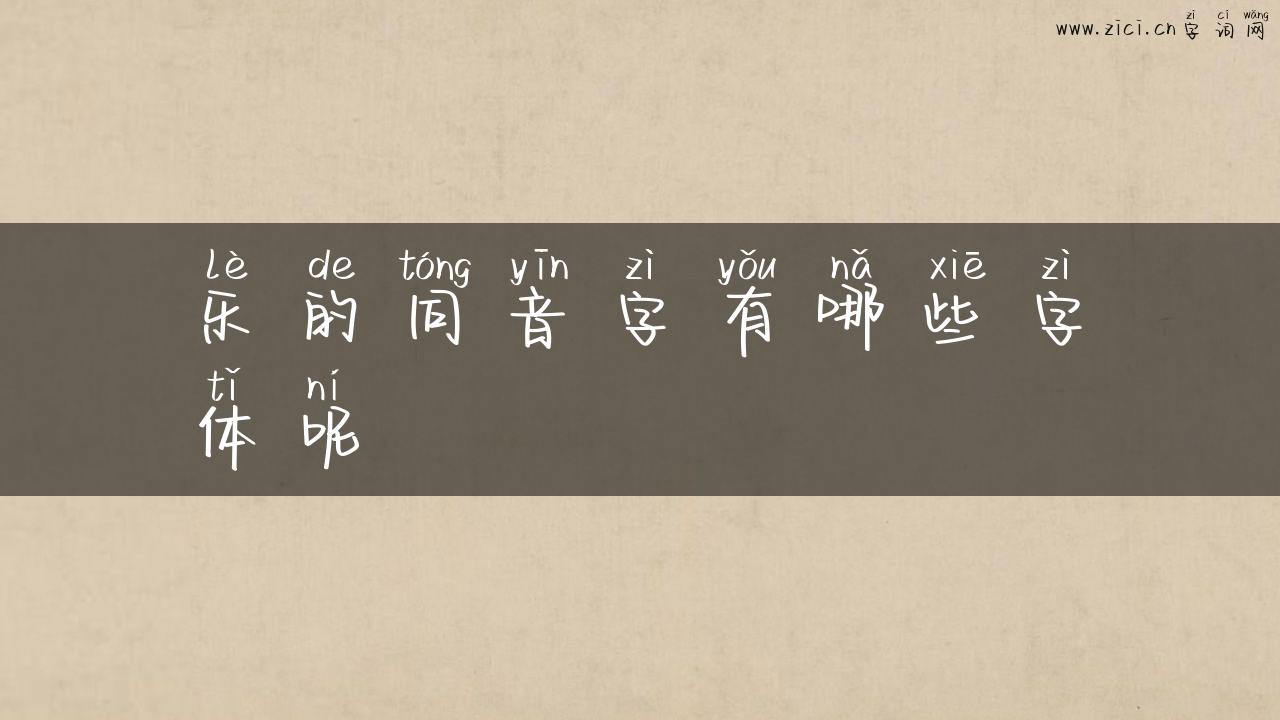 zì cí wǎng
www.zici.cn 字词网
lè de tóng yīn zì yǒu nǎ xiē zì
乐的同音字有哪些字
tǐ ní
体呢